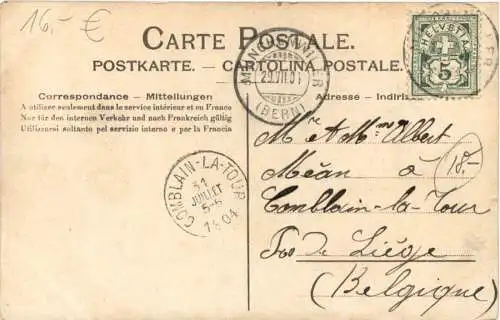 16.- €
CARTE POSTALE.
POSTKARTE. - CARTOLINA POSTALE.
HELVETIA
5
29.VII.04
(BERN)
Correspondance - Mittellungen
Adresse - Indirizzo
A utiliser seulement dans le service intérieur et en France
Nur für den internen Verkehr und nach Frankreich gültig
Utilizzarsi soltanto pel servizio interno e par la Francia
Mr & Mme Albert
Méan à
18.-
COMBLAIN-LA-TOUR
31
JUILLET
5-6
1904
Comblain-la-Tour
Liége
(Belgique)